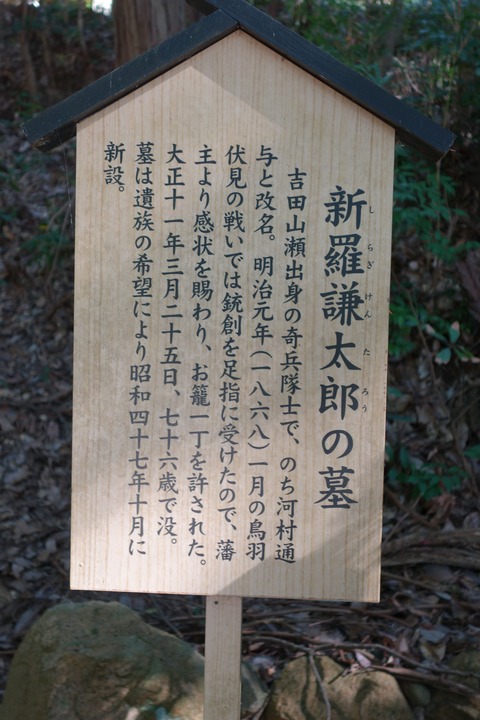 新羅謙太郎の墓
しらぎけんたろう
吉田山瀬出身の奇兵隊士で、のち河村通
与と改名。明治元年(一八六八)一月の鳥羽
伏見の戦いでは銃創を足指に受けたので、藩
主より感状を賜わり、お籠一丁を許された。
大正十一年三月二十五日、七十六歳で没。
墓は遺族の希望により昭和四十七年十月に
新設。